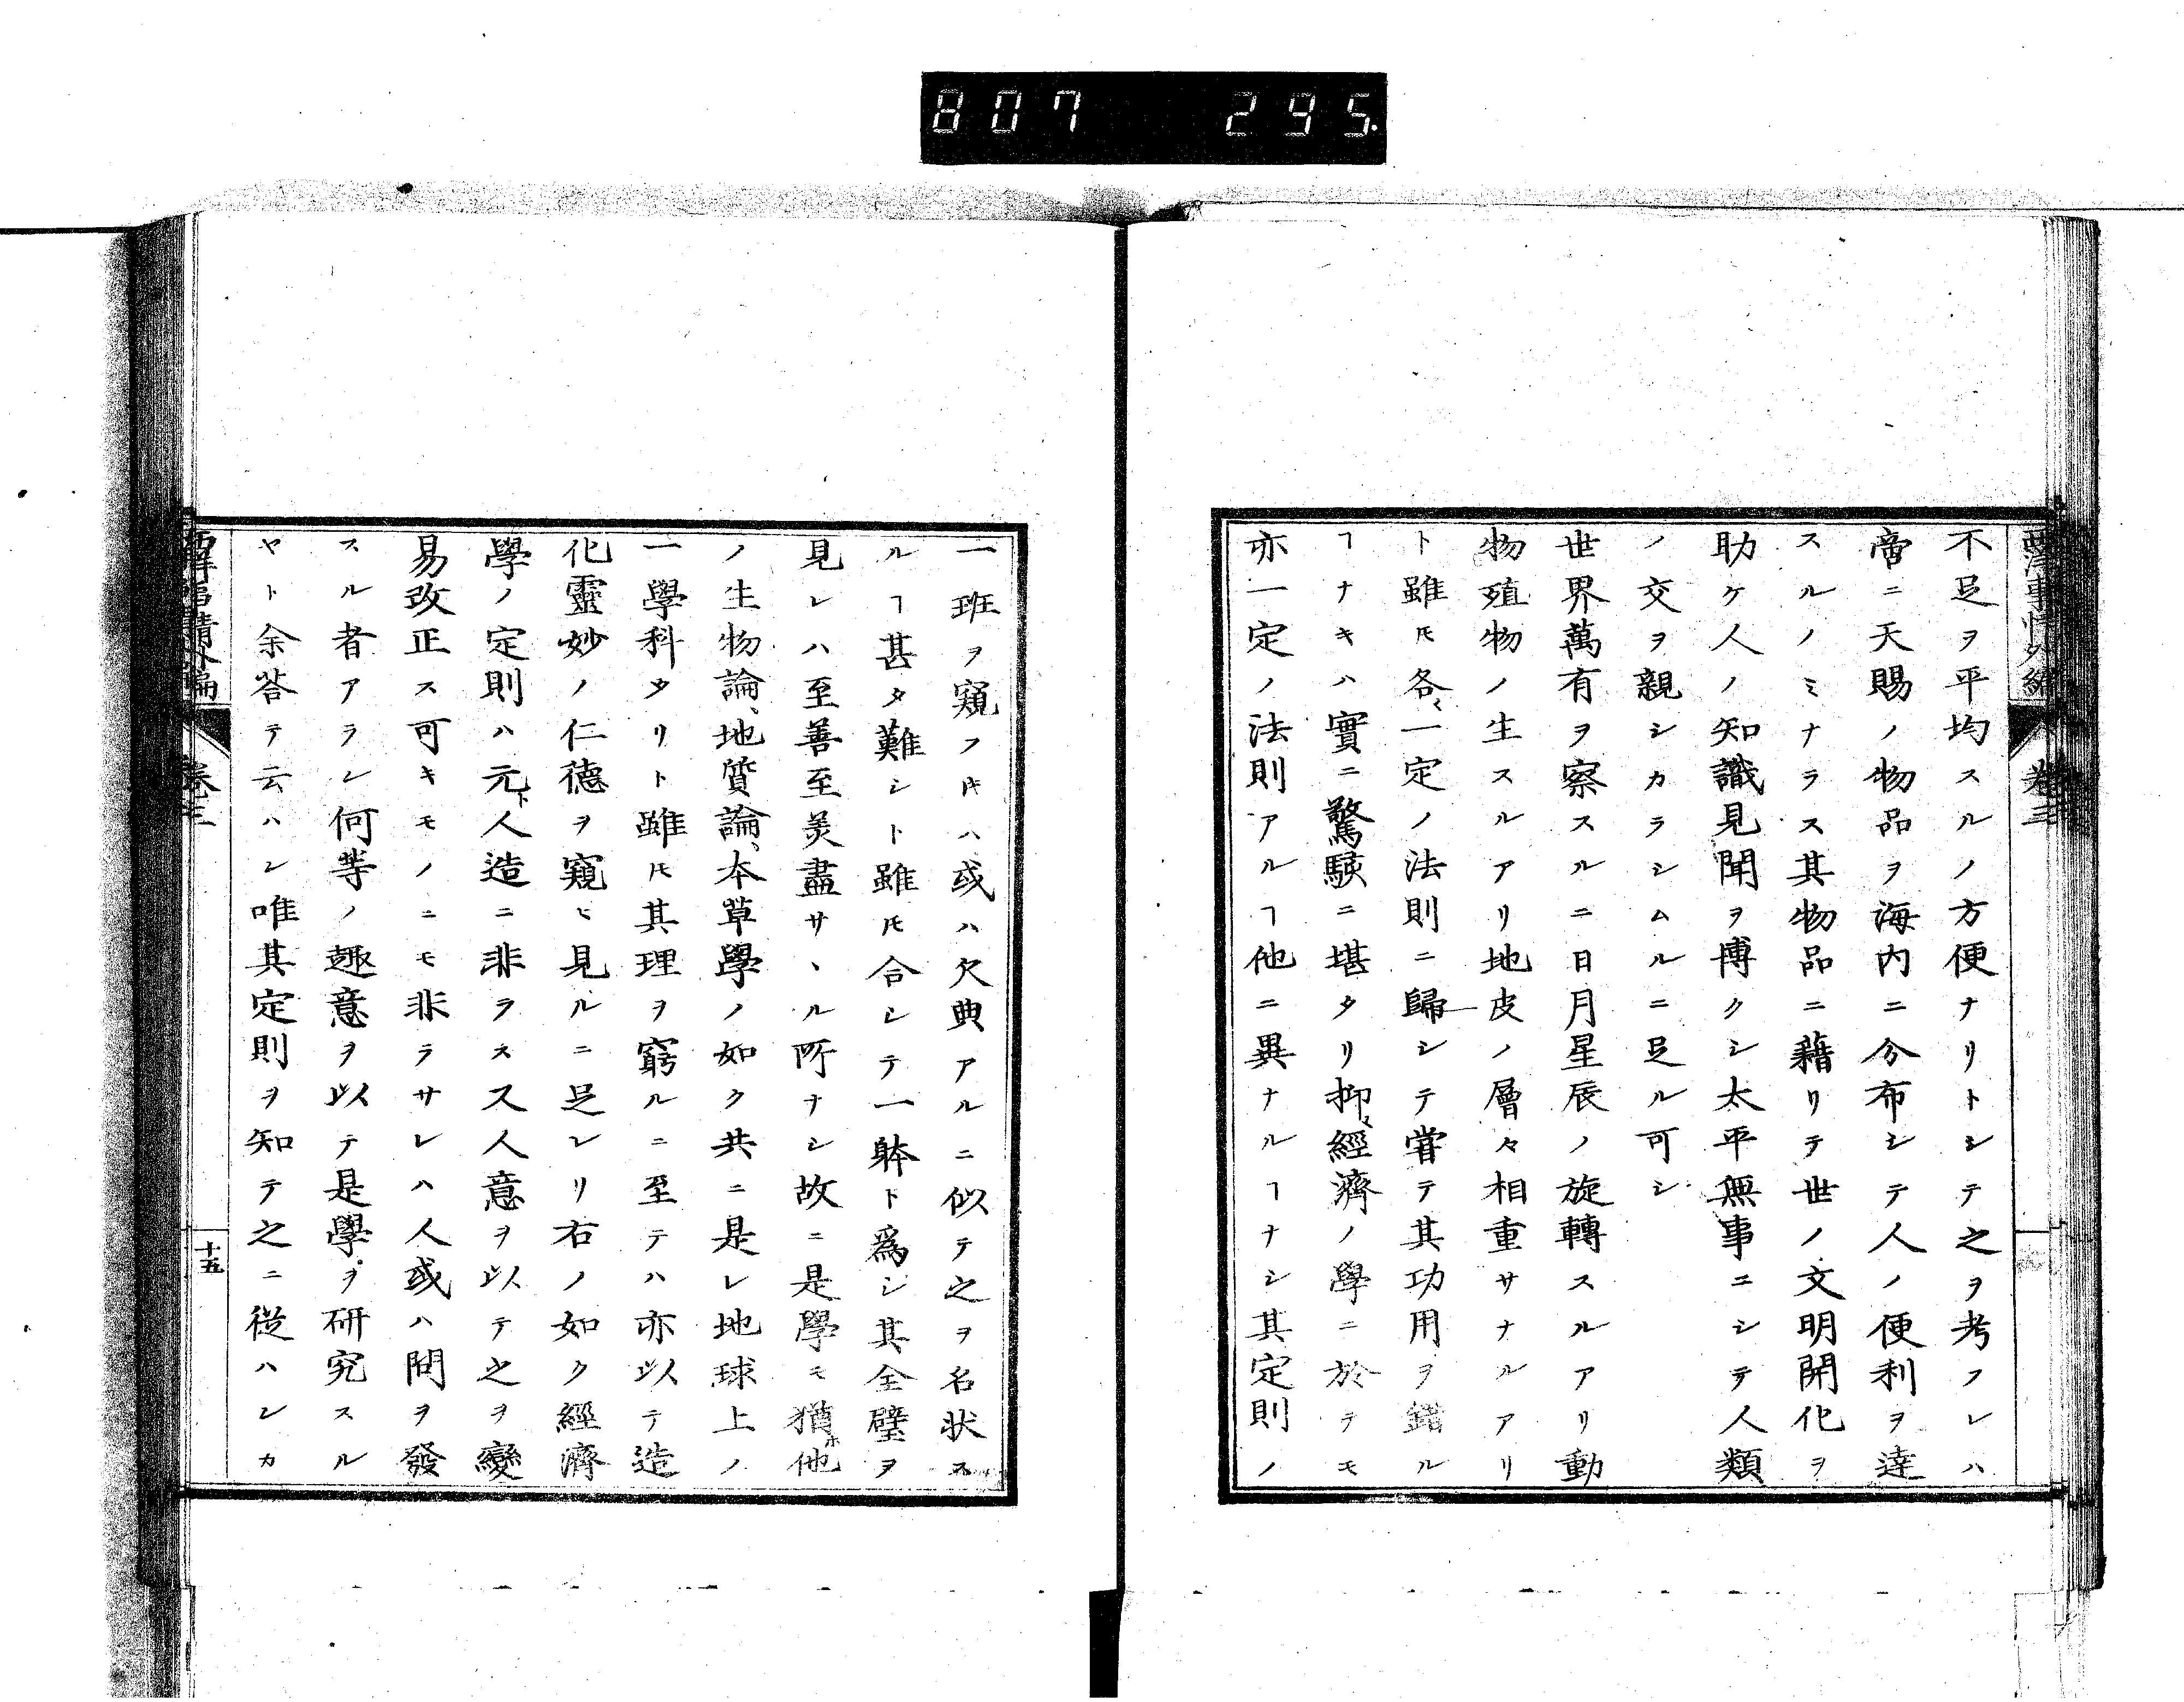 807 295.
西洋事情外編 卷三
不足ヲ平均スルノ方便ナリトシテ之ヲ考フレハ
啻ニ天賜ノ物品ヲ海内ニ分布シテ人ノ便利ヲ達
スルノミナラス其物品ニ藉リテ世ノ文明開化ヲ
助ケ人ノ知識見聞ヲ博クシ太平無事ニシテ人類
ノ交ヲ親シカラシムルニ足ル可シ
世界萬有ヲ察スルニ日月星辰ノ旋轉スルアリ動
物殖物ノ生スルアリ地皮ノ層々相重サナルアリ
ト雖𪜈各〻一定ノ法則ニ歸シテ嘗テ其功用ヲ錯ル
ヿナキハ實ニ驚駭ニ堪タリ抑〻經濟ノ學ニ於テモ
亦一定ノ法則アルヿ他ニ異ナルヿナシ其定則ノ
一班ヲ窺フ𪜈ハ或ハ欠典アルニ似テ之ヲ名状ス
ルヿ甚タ難シト雖𪜈合シテ一躰ト爲シ其全璧ヲ
見レハ至善至美盡サヽル所ナシ故ニ是學モ猶ホ他
ノ生物論、地質論、本草學ノ如ク共ニ是レ地球上ノ
一學科タリト雖𪜈其理ヲ窮ルニ至テハ亦以テ造
化靈妙ノ仁德ヲ窺ヒ見ルニ足レリ右ノ如ク經濟
學ノ定則ハ元ト人造ニ非ラス人意ヲ以テ之ヲ變
易改正ス可キモノニモ非ラサレハ人或ハ問ヲ發
スル者アラン何等ノ趣意ヲ以テ是學ヲ研究スル
ヤト余答テ云ハン唯其定則ヲ知テ之ニ從ハンカ
西洋事情外編 卷三 十五